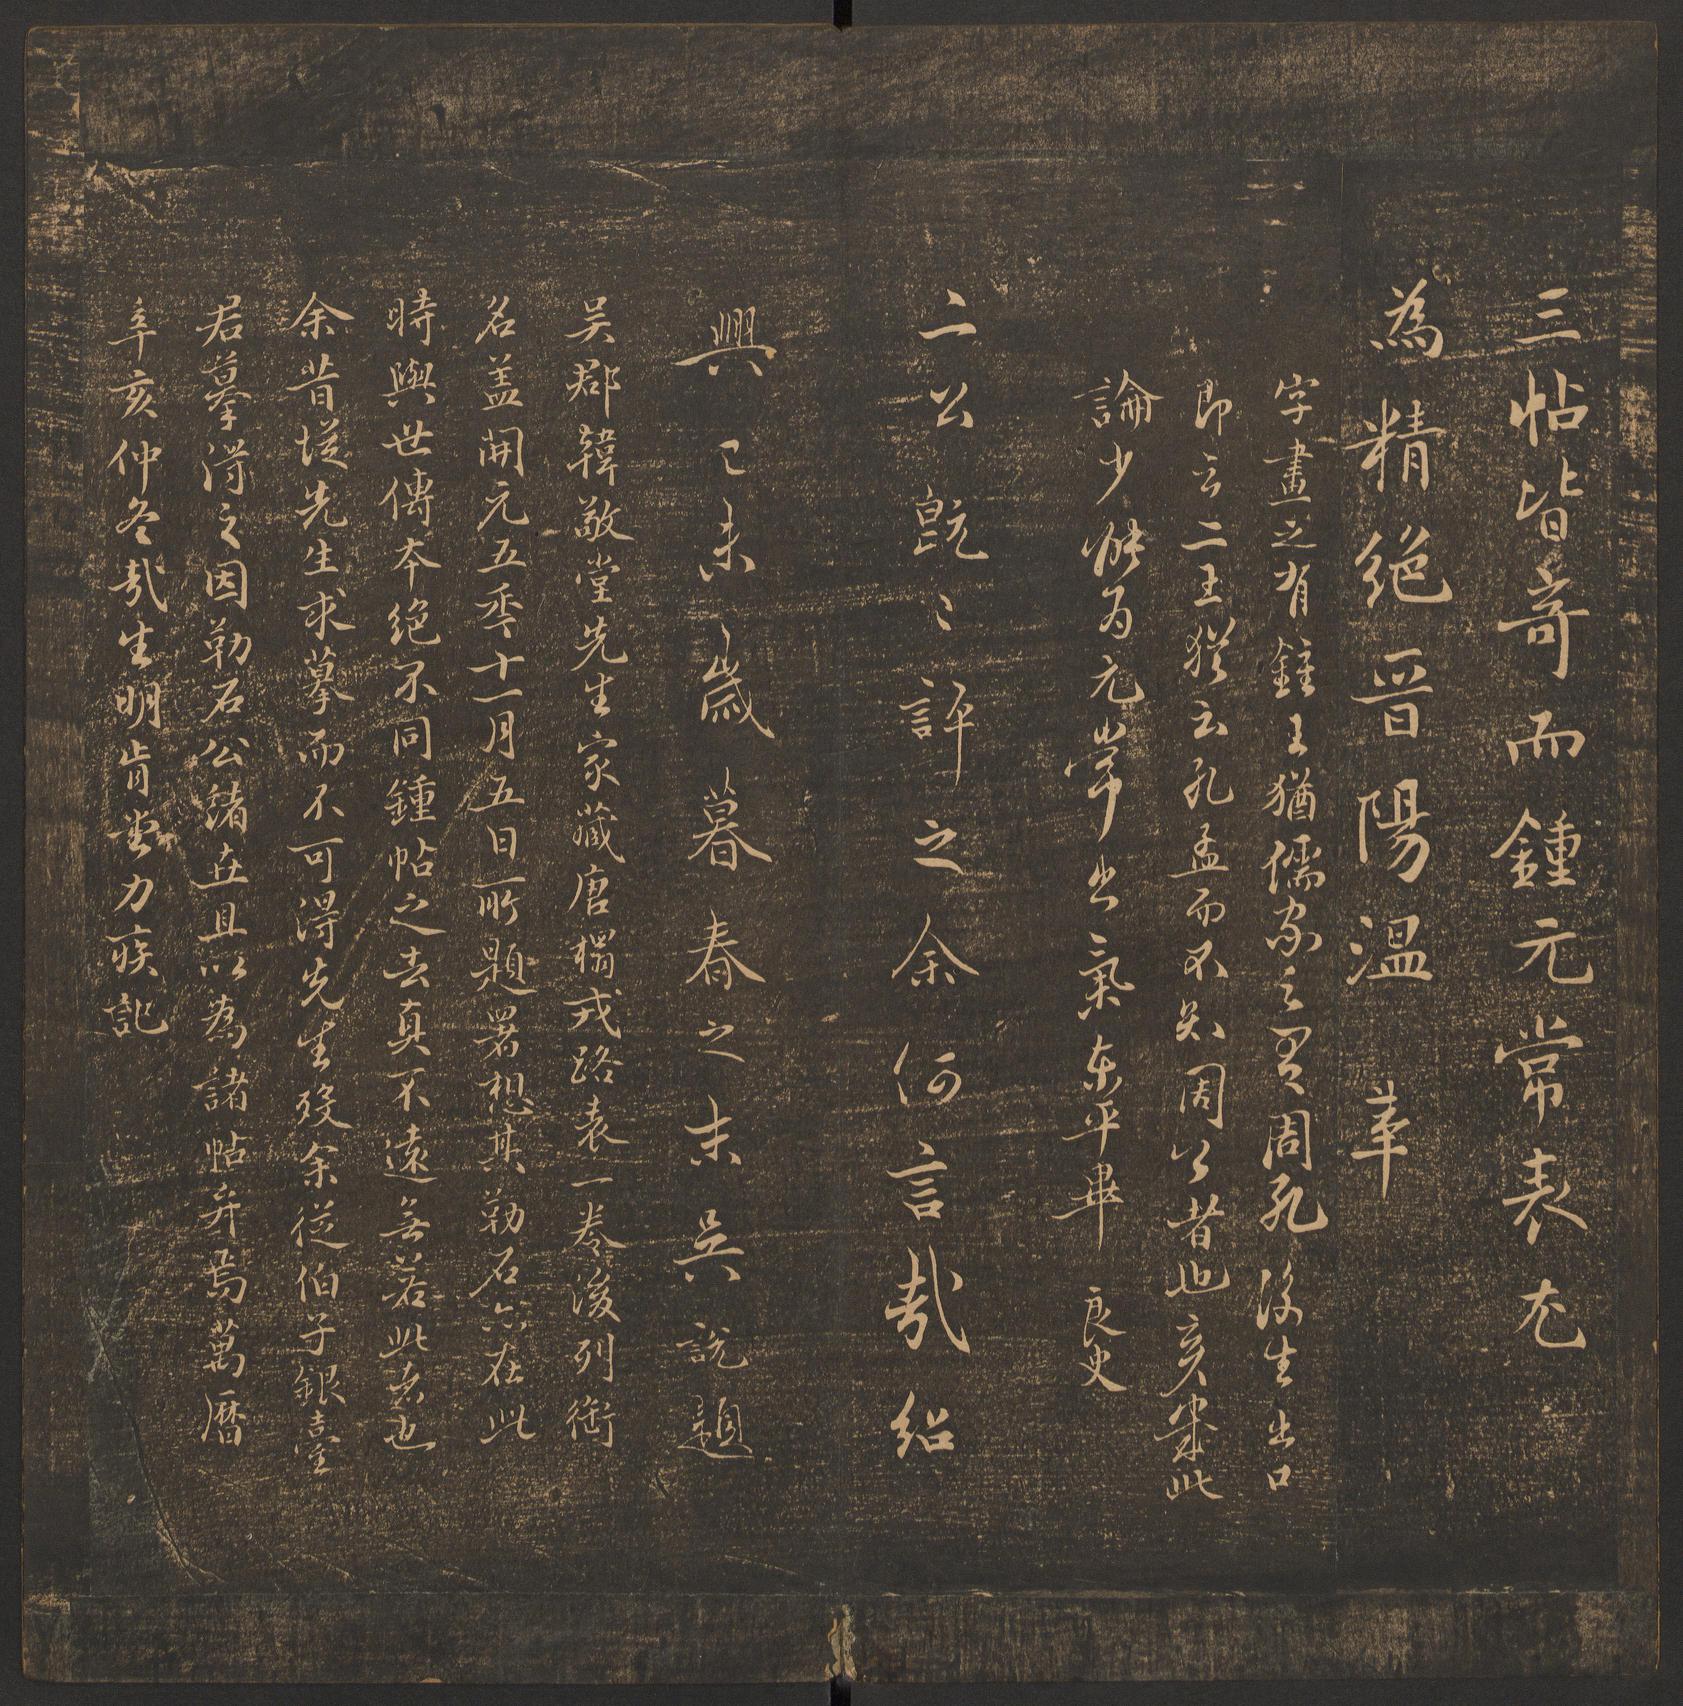 三帖皆奇而鍾元常表尤
為精絕晉陽溫革
字畫之有鍾王猶儒家之有周孔後生出口
即云二王猶云孔孟而不知周公者也亥來此
論少能為元常出氣東平畢良史
二公既已評之余何言哉紹
興己未歲暮春之末吳說題
吳郡韓敬堂先生家藏唐榻戎路表一卷後列銜
名盖開元五年十一月五日所題署想其勒石亦在此
時與世傳本絕不同鍾帖之去真不遠無若此者也
余昔從先生求摹而不可得先生歿余從伯子銀臺
君摹得之因勒石公諸世且以為諸帖弁焉萬曆
辛亥仲冬哉生明肯堂力疾記